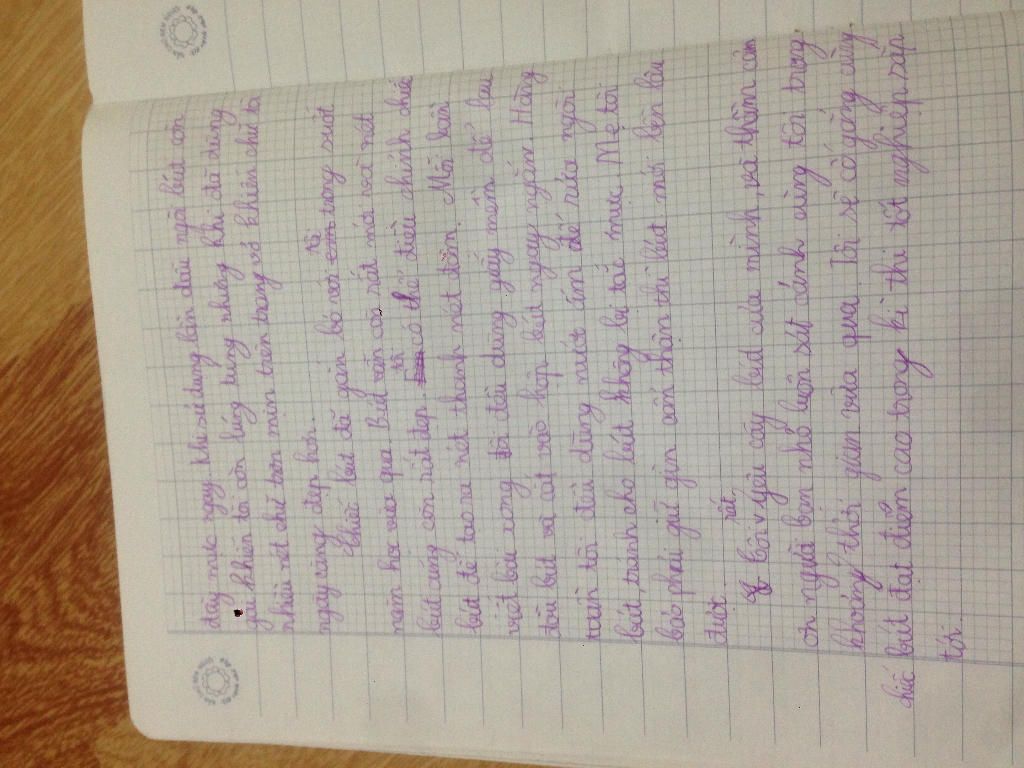 đầy mực ngay. Khi sử dụng lần đầu ngòi bút còn
gai khiến tôi còn lúng túng nhưng khi đã dùng
nhiều nét chữ trơn mịn trên trang vở khiến chữ tôi
ngày càng đẹp hơn.
Chiếc bút đã gắn bó với tôi trong suốt
năm học vừa qua. Bút vẫn còn rất mới và nét
bút cũng còn rất đẹp. Tôi có thể điều chỉnh chiếc
bút để tạo ra nét thanh nét đậm. Mỗi lần
viết bài xong tôi đều dùng giấy mềm để lau
đầu bút và cất vào hộp bút ngay ngắn. Hàng
tuần tôi đều dùng nước ấm để rửa ngòi
bút, tránh cho bút không bị tắc mực. Mẹ tôi
bảo phải giữ gìn cẩn thận thì bút mới bền lâu
được.
Tôi rất yêu cây bút của mình, và thầm cảm
ơn người bạn nhỏ luôn sát cánh cùng tôi trong
khoảng thời gian vừa qua. Tôi sẽ cố gắng cùng
chiếc bút đạt điểm cao trong kì thi tốt nghiệp sắp
tới.